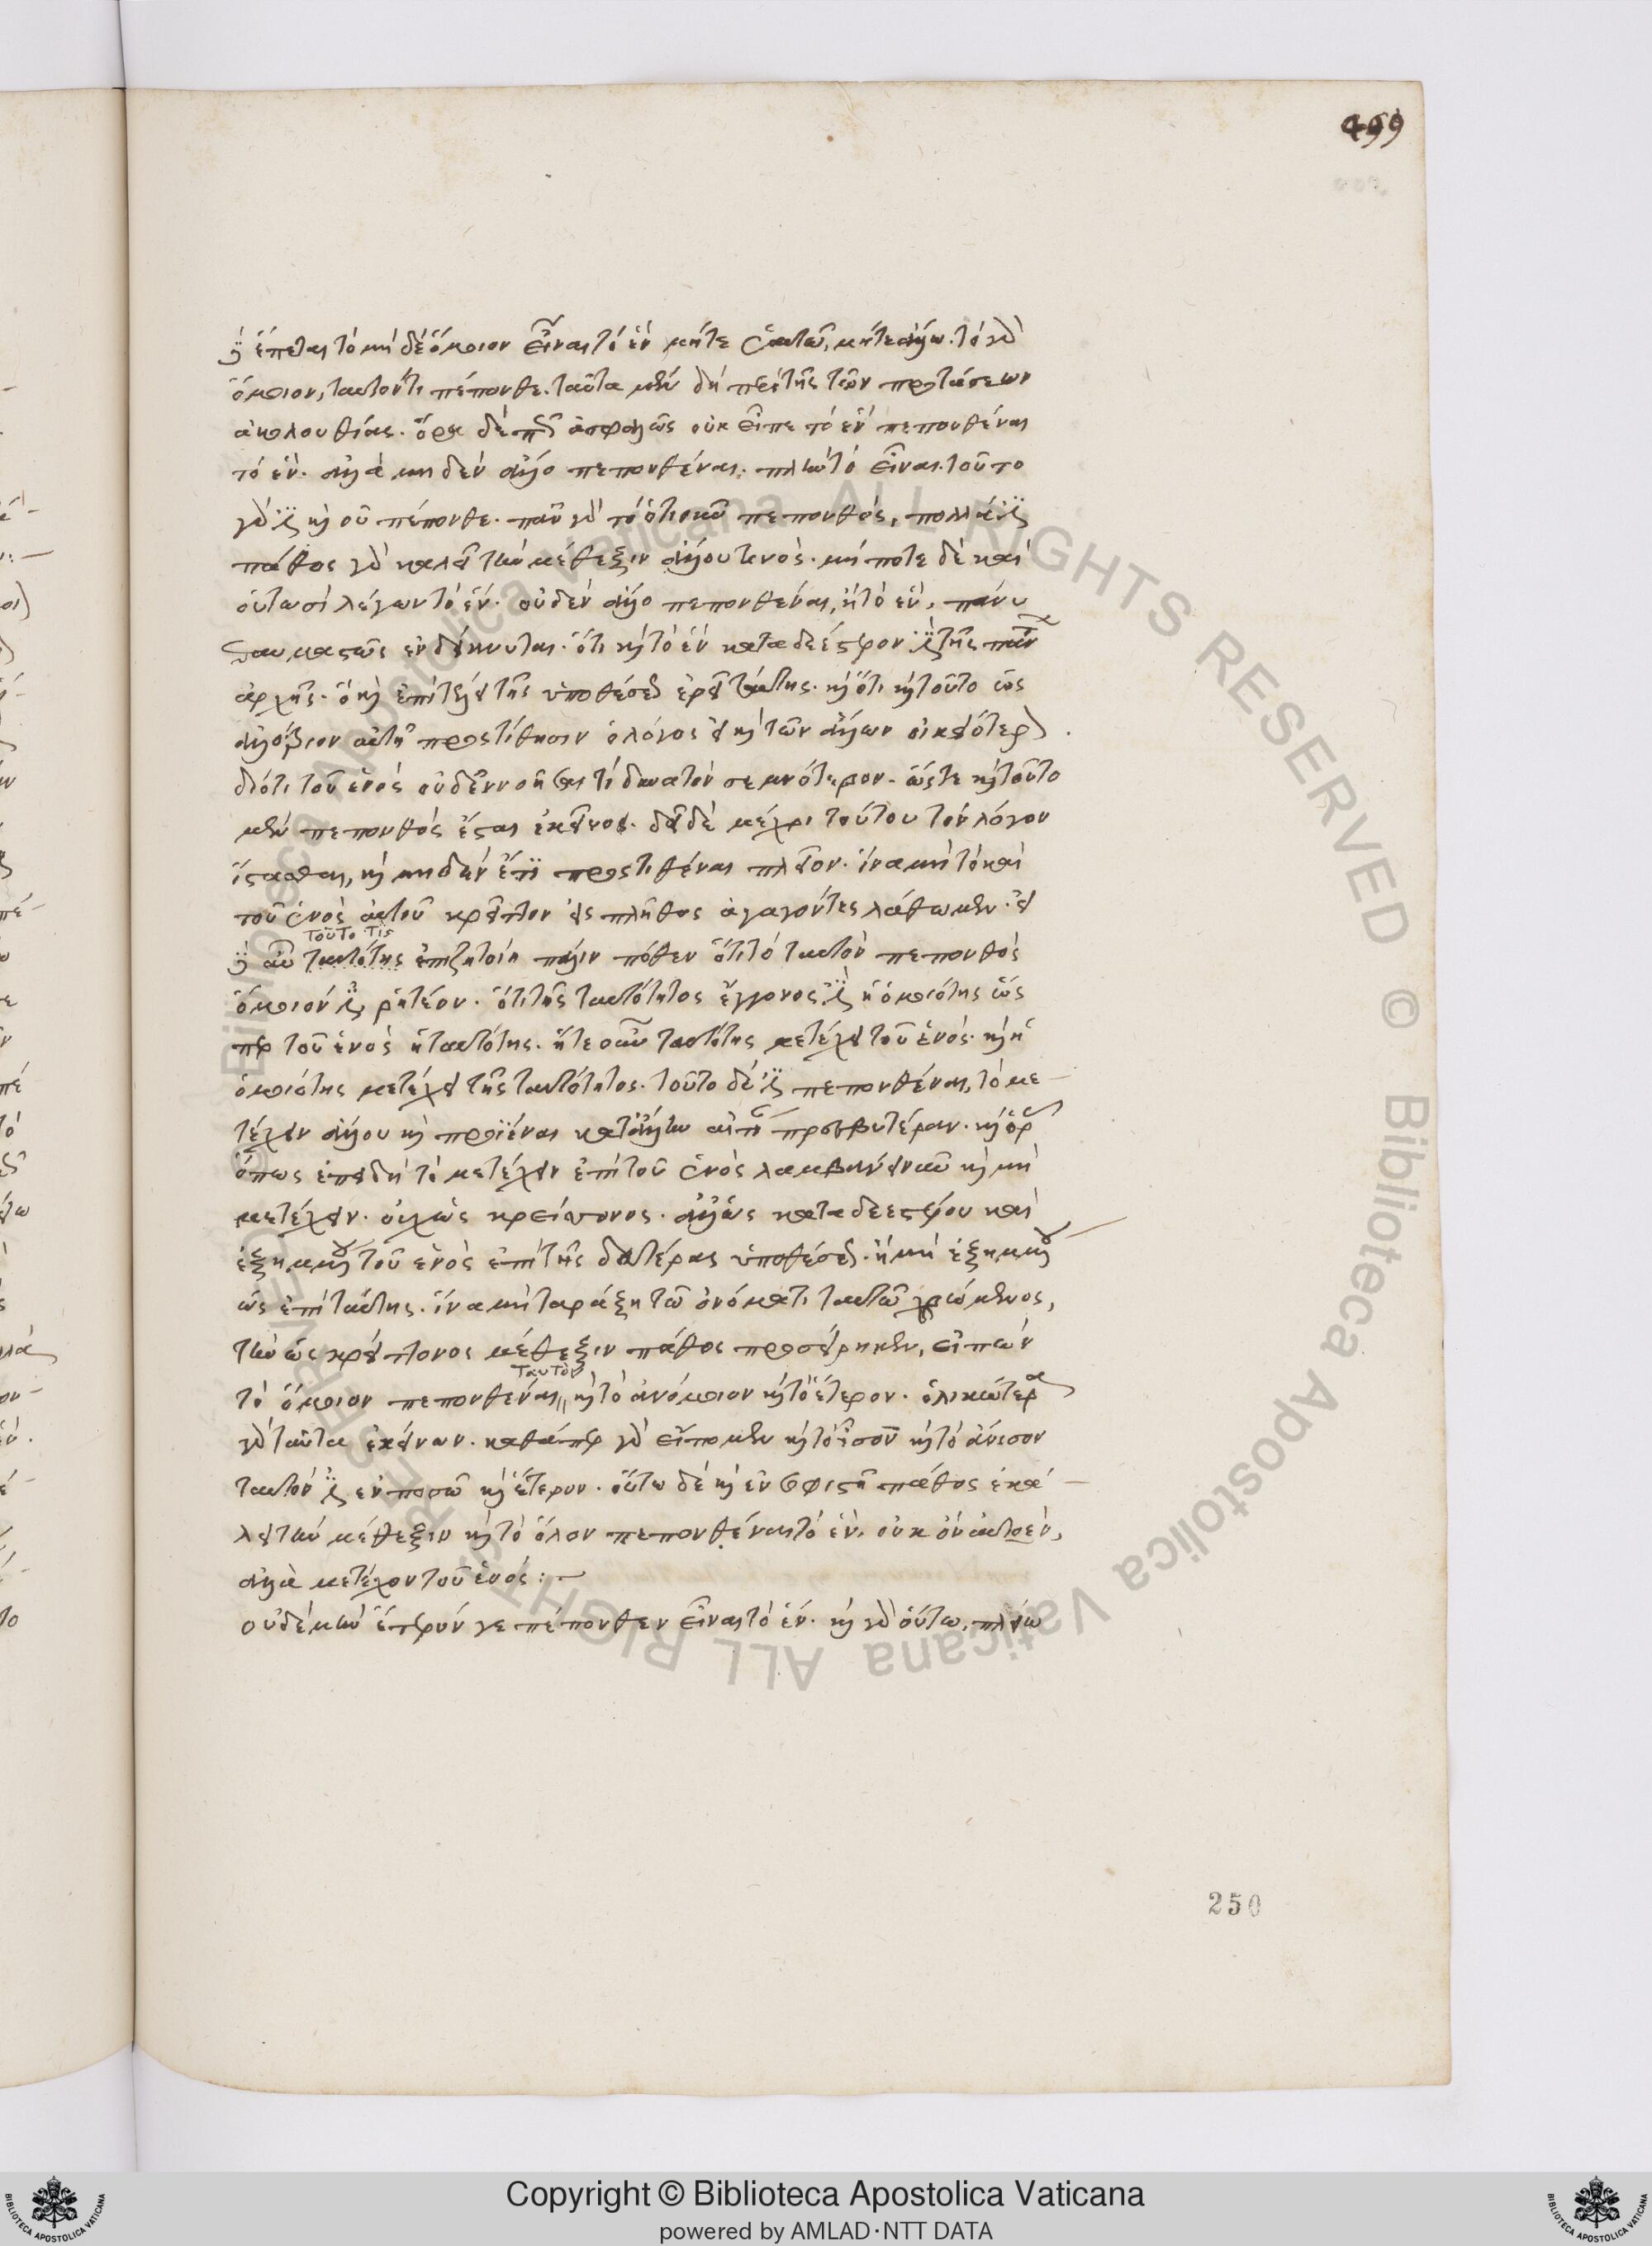 499
ᾧ ἕπεται τὸ μηδὲ ὅμοιον εἶναι τὸ ἓν μήτε ἑαυτῷ, μήτε ἄλλῳ. τὸ γὰρ
ὅμοιον, ταυτόν τι πέπονθε. ταῦτα μὲν δὴ περὶ τῆς τῶν προτάσεων
ἀκολουθίας. ὅρα δὲ πῶς ἀσφαλῶς οὐκ εἶπε τὸ ἓν πεπονθέναι
τὸ ἕν. ἀλλὰ μηδὲν ἄλλο πεπονθέναι. πλὴν τὸ εἶναι. τοῦτο
γάρ ἐστι καὶ οὐ πέπονθε. πᾶν γὰρ τὸ ὁτιοῦν πεπονθός, πολλά ἐστι
πάθος γὰρ καλεῖ τὴν μέθεξιν ἄλλου τινός. μήποτε δὲ καὶ
οὑτωσὶ λέγων τὸ ἕν. οὐδὲν ἄλλο πεπονθέναι, ἢ τὸ ἕν, πάνυ
θαυμαστῶς ἐνδείκνυται. ὅτι καὶ τὸ ἓν καταδεέστερον ἐστι τῆς πάντων
ἀρχῆς. ὃ καὶ ἐπὶ τέλει τῆς ὑποθέσεως ἐρεῖ ταύτης. καὶ ὅτι καὶ τοῦτο ὡς
ἀλλότριον αὐτῇ προστίθησιν ὁ λόγος εἰ καὶ τῶν ἄλλων οἰκειότερον.
διότι τοῦ ἑνὸς οὐδὲν νοῆσαί τι δυνατὸν σεμνότερον. ὥστε καὶ τοῦτο
μὲν πεπονθὸς ἔσται ἐκεῖνος. δεῖ δὲ μέχρι τούτου τὸν λόγον
ἵστασθαι, καὶ μηδὲν ἔτι προστιθέναι πλεῖον. ἵνα μὴ τὸ καὶ
τοῦ ἑνὸς αὐτοῦ κρεῖττον εἰς πλῆθος ἀγαγόντες λάθωμεν. εἰ
τοῦτο τις
δὲ αὖ ταυτότης ἐπιζητοίη πάλιν πόθεν ὅτι τὸ ταυτὸν πεπονθὸς
ὅμοιόν ἐστι, ῥητέον. ὅτι τῆς ταυτότητος ἔγγονος ἐστι ἡ ὁμοιότης ὥς
περ τοῦ ἑνὸς ἡ ταυτότης. ἥ τε οὖν ταυτότης μετέχει τοῦ ἑνός. καὶ ἡ
ὁμοιότης μετέχει τῆς ταυτότητος. τοῦτο δέ ἐστι πεπονθέναι, τὸ με-
τέχειν ἄλλου καὶ προϊέναι κατ' ἄλλην αἰτίαν πρεσβυτέραν. καὶ ὅρα
ὅπως ἐπειδὴ τὸ μετέχειν ἐπὶ τοῦ ἑνὸς λαμβάνειν καὶ μὴ
μετέχειν. οὐχ ὡς κρείττονος. ἀλλ' ὡς καταδεεστέρου καὶ
ἐξημμένου τοῦ ἑνὸς ἐπὶ τῆς δευτέρας ὑποθέσεως. ἢ μὴ ἐξημμένου
ὡς ἐπὶ ταύτης. ἵνα μὴ ταράξῃ τῷ ὀνόματι ταυτῷ χρώμενος,
τὴν ὡς κρείττονος μέθεξιν πάθος προσείρηκεν, εἰπὼν
ταυτὸν
τὸ ὅμοιον πεπονθέναι καὶ τὸ ἀνόμοιον καὶ τὸ ἕτερον. ὁλικώτερα
γὰρ ταῦτα ἐκείνων. καθάπερ γὰρ εἴπομεν καὶ τὸ ἴσον καὶ τὸ ἄνισον
ταυτόν ἐστι ἐν ποσῷ καὶ ἕτερον. οὕτω δὲ καὶ ἐν σοφιστῇ πάθος ἐκά-
λει τὴν μέθεξιν καὶ τὸ ὅλον πεπονθέναι τὸ ἕν. οὐκ ὂν αὐτοέν,
ἀλλὰ μετέχον τοῦ ἑνός:
οὐδὲ μὴν ἕτερόν γε πέπονθεν εἶναι τὸ ἕν. καὶ γὰρ οὕτω, πλείω
250
© Biblioteca Apostolica Vaticana ALL RIGHTS RESERVED © Biblioteca Apostolica Vaticana ALL RIGHTS RESERVED
Copyright © Biblioteca Apostolica Vaticana
powered by AMLAD·NTT DATA
BIBLIOTECA APOSTOLICA VATICANA
BIBLIOTECA APOSTOLICA VATICANA